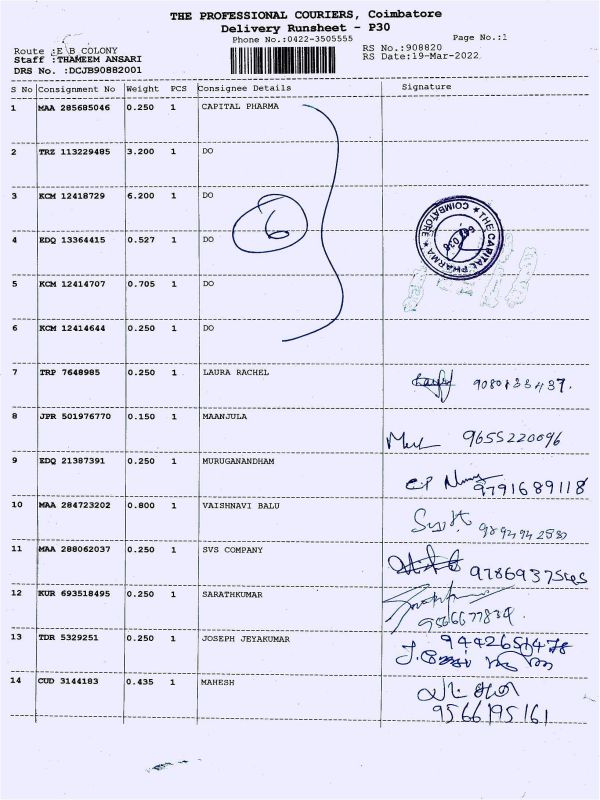 THE PROFESSIONAL COURIERS, Coimbatore
Delivery Runsheet - P30
Phone No.:0422-3505555
Page No.:1
Route :E B COLONY
RS No.:908820
Staff :THAMEEM ANSARI
RS Date:19-Mar-2022
DRS No. :DCJB90882001
S No Consignment No Weight PCS Consignee Details Signature
1 MAA 285685046 0.250 1 CAPITAL PHARMA
2 TRZ 113229485 3.200 1 DO
3 KCM 12418729 6.200 1 DO
6
4 EDQ 13364415 0.527 1 DO
THE CAPITAL PHARMA * COIMBATORE *
5 KCM 12414707 0.705 1 DO
6 KCM 12414644 0.250 1 DO
7 TRP 7648985 0.250 1 LAURA RACHEL
8 JPR 501976770 0.150 1 MAANJULA
9655220096
9 EDQ 21387391 0.250 1 MURUGANANDHAM
9791689118
10 MAA 284723202 0.800 1 VAISHNAVI BALU
11 MAA 288062037 0.250 1 SVS COMPANY
12 KUR 693518495 0.250 1 SARATHKUMAR
13 TDR 5329251 0.250 1 JOSEPH JEYAKUMAR
14 CUD 3144183 0.435 1 MAHESH
9566195161